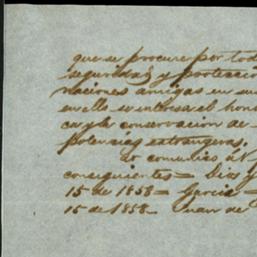 que se procure por tod
seguridad y proteccio
naciones amigas en su
en ello se interesa el hon
ca y la conservacion de
potencias extrangeras.
lo comunico á V
consiguientes = Dios y
15 de 1858 = Garcia =
15 de 1858 Juan de